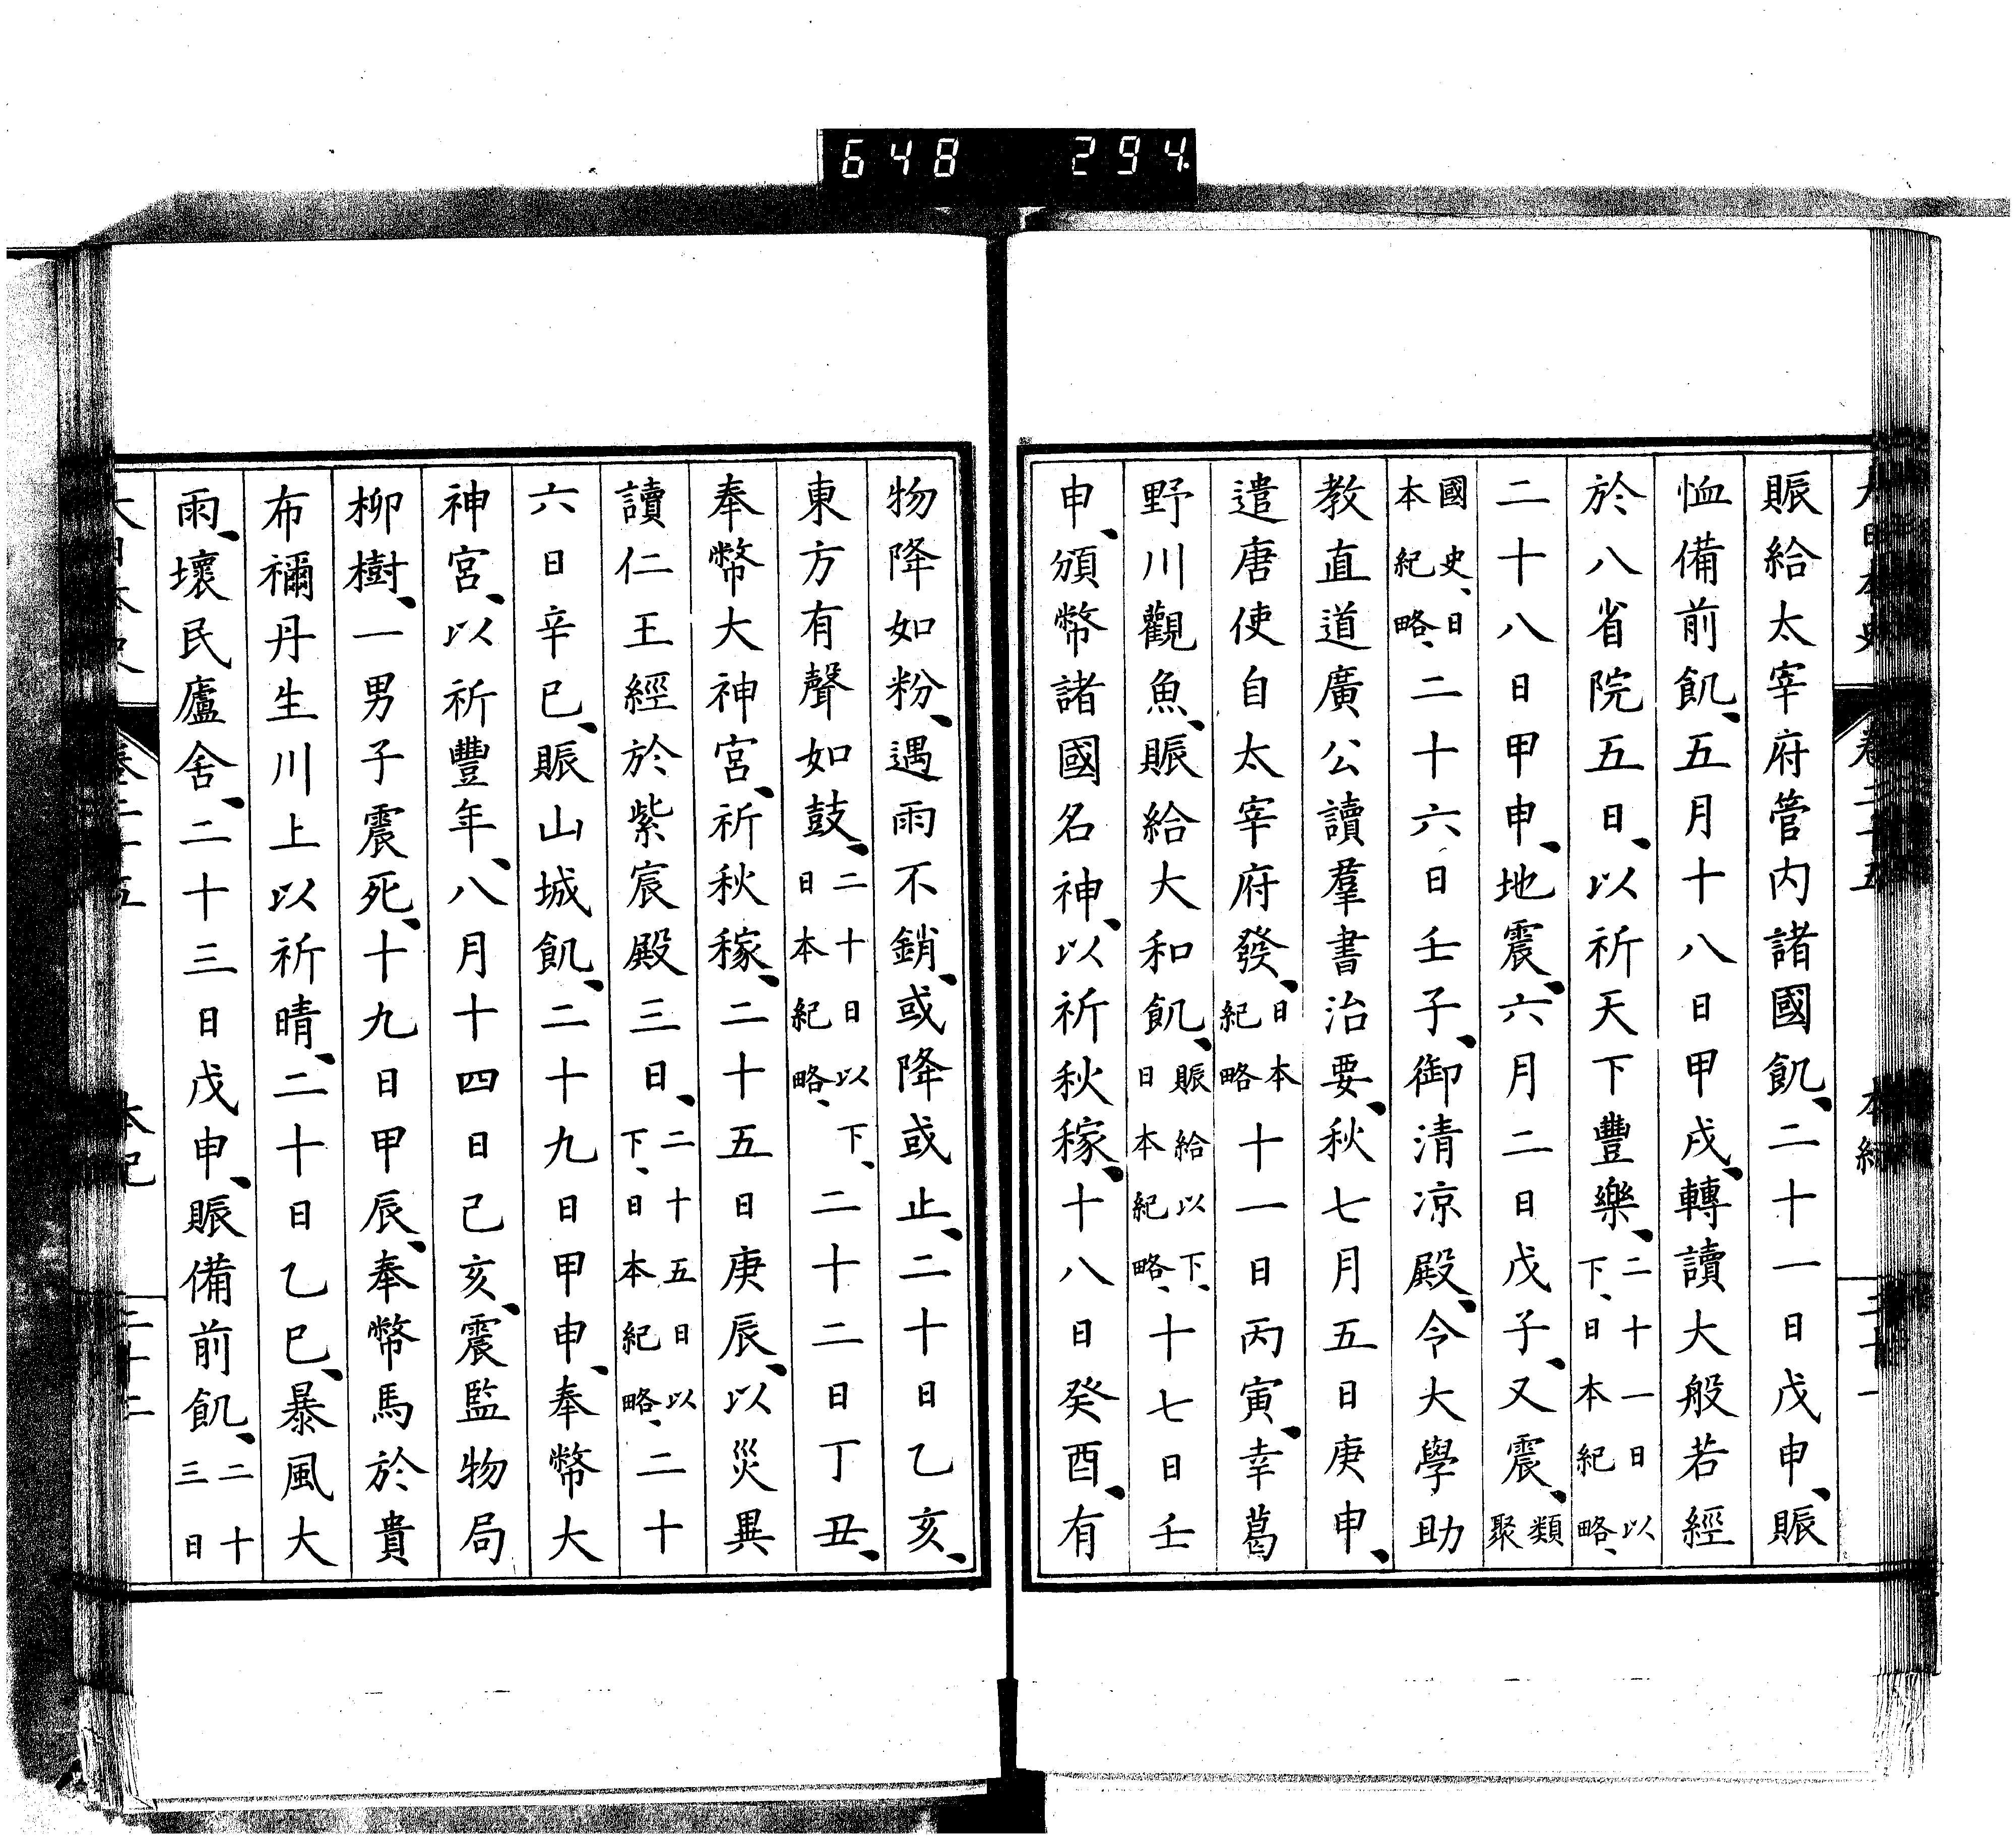 648 294
賑給太宰府管内諸國飢、二十一日戊申、賑
恤備前飢、五月十八日甲戌、轉讀大般若經
於八省院五日、以祈天下豐樂、二十一日以下、日本紀略、
二十八日甲申、地震、六月二日戊子、又震、類聚
國史、日本紀略、二十六日壬子、御清凉殿、令大學助
教直道廣公讀羣書治要、秋七月五日庚申、
遣唐使自太宰府發、日本紀略十一日丙寅、幸葛
野川觀魚、賑給大和飢、賑給以下、日本紀略、十七日壬
申、頒幣諸國名神、以祈秋稼、十八日癸酉、有
物降如粉、遇雨不銷、或降或止、二十日乙亥、
東方有聲如鼓、二十日以下、日本紀略、二十二日丁丑、
奉幣大神宮、祈秋稼、二十五日庚辰、以災異
讀仁王經於紫宸殿三日、二十五日以下、日本紀略、二十
六日辛巳、賑山城飢、二十九日甲申、奉幣大
神宮、以祈豐年、八月十四日己亥、震監物局
柳樹、一男子震死、十九日甲辰、奉幣馬於貴
布禰丹生川上以祈晴、二十日乙巳、暴風大
雨、壞民廬舍、二十三日戊申、賑備前飢、二十三日